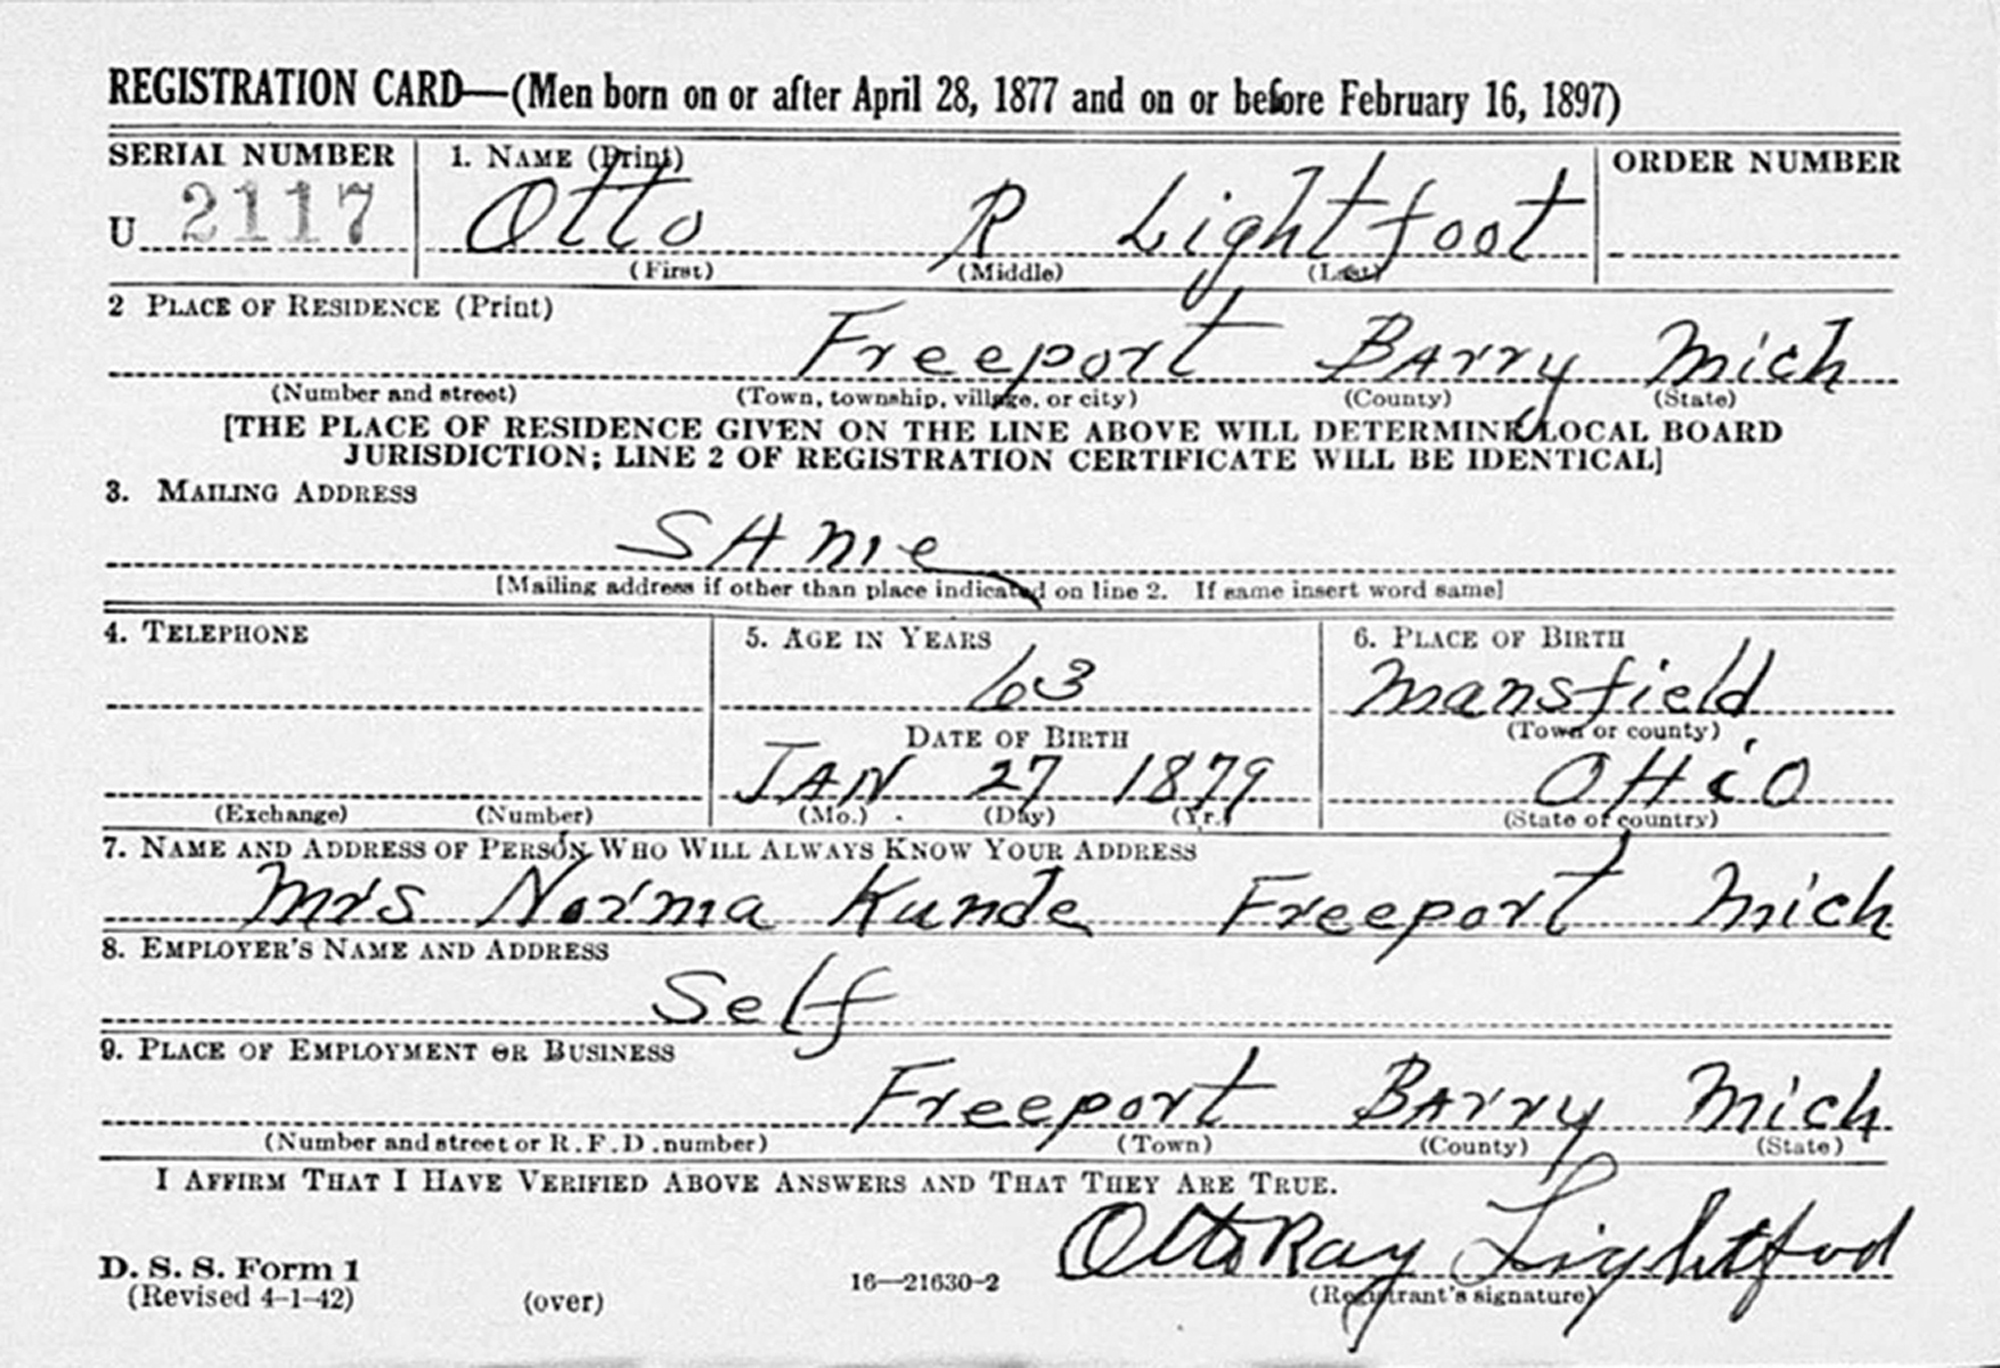 REGISTRATION CARD—(Men born on or after April 28, 1877 and on or before February 16, 1897)
SERIAL NUMBER 1. NAME (Print) ORDER NUMBER
U 2117 Otto R Lightfoot
(First) (Middle) (Last)
2 PLACE OF RESIDENCE (Print)
Freeport Barry Mich
(Number and street) (Town, township, village, or city) (County) (State)
[THE PLACE OF RESIDENCE GIVEN ON THE LINE ABOVE WILL DETERMINE LOCAL BOARD
JURISDICTION; LINE 2 OF REGISTRATION CERTIFICATE WILL BE IDENTICAL]
3. MAILING ADDRESS
SAme
[Mailing address if other than place indicated on line 2. If same insert word same]
4. TELEPHONE 5. AGE IN YEARS 6. PLACE OF BIRTH
63 Mansfield
DATE OF BIRTH (Town or county)
JAN 27 1879 OHiO
(Exchange) (Number) (Mo.) (Day) (Yr.) (State or country)
7. NAME AND ADDRESS OF PERSON WHO WILL ALWAYS KNOW YOUR ADDRESS
Mrs Norma Kunde Freeport Mich
8. EMPLOYER'S NAME AND ADDRESS
Self
9. PLACE OF EMPLOYMENT OR BUSINESS
Freeport Barry Mich
(Number and street or R.F.D. number) (Town) (County) (State)
I AFFIRM THAT I HAVE VERIFIED ABOVE ANSWERS AND THAT THEY ARE TRUE.
Otto Ray Lightfoot
D. S. S. Form 1
(Revised 4-1-42) (over) 16—21630-2 (Registrant's signature)